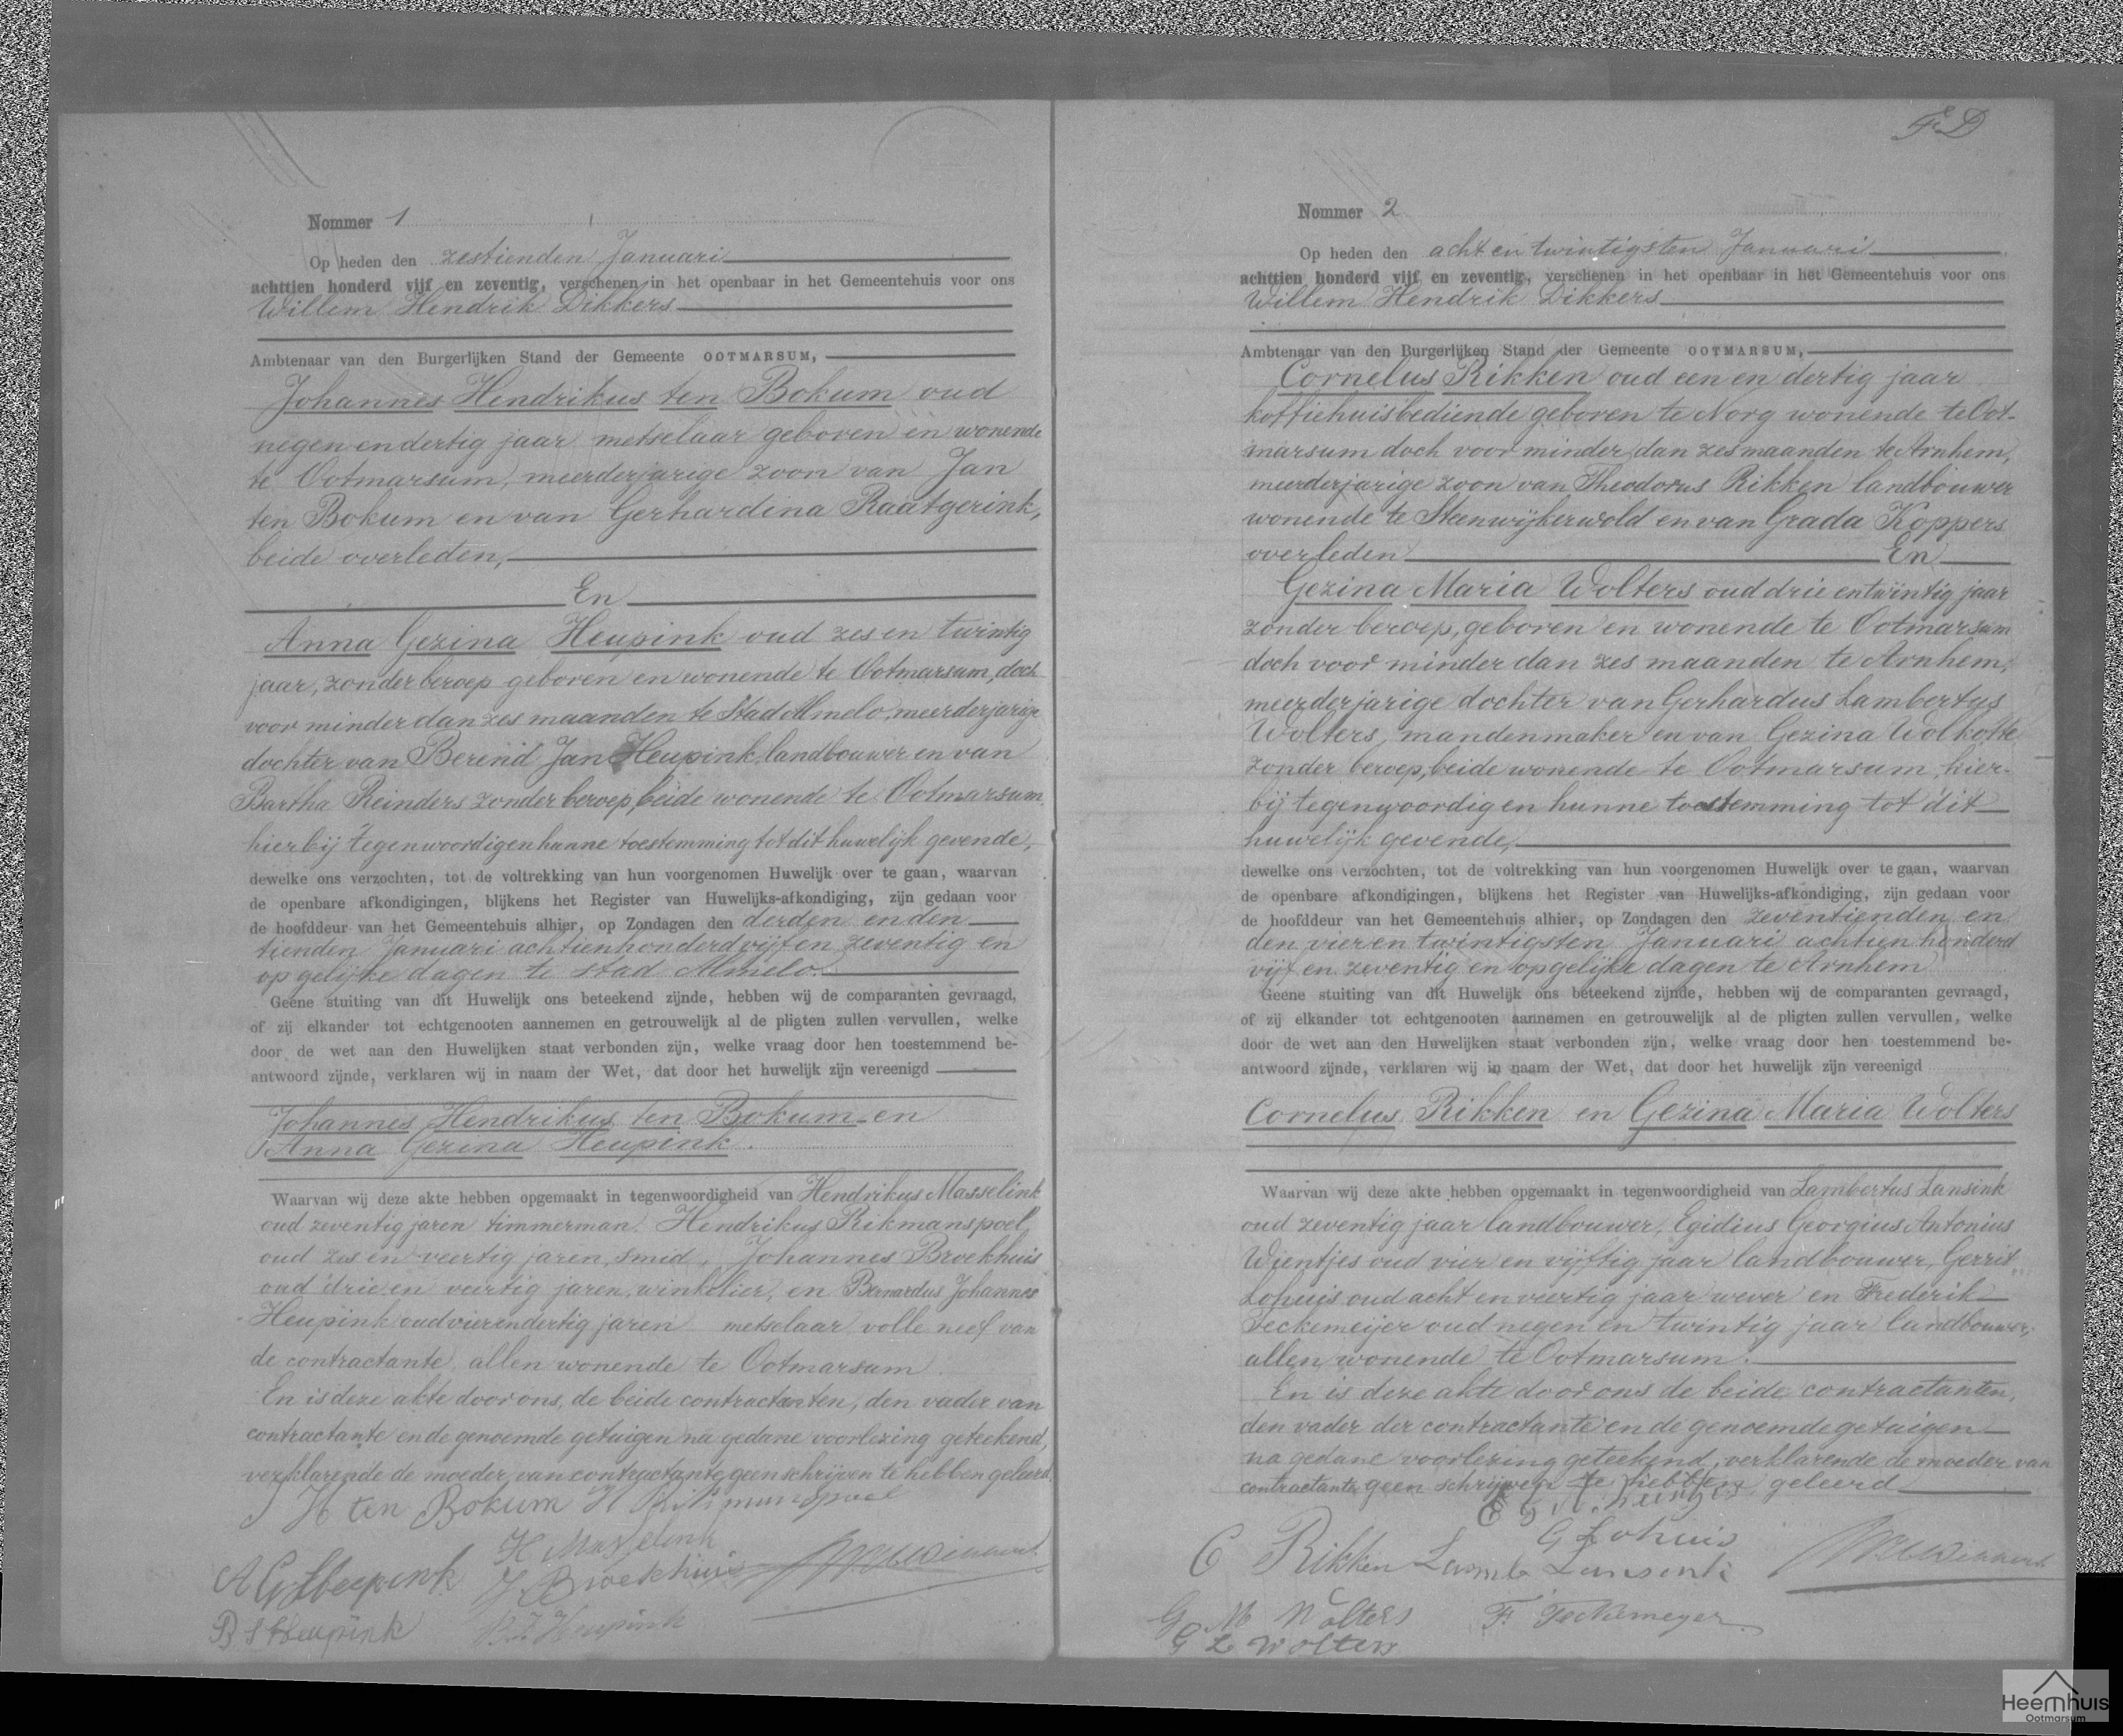 Nommer 1
Op heden den zestienden Januari
achttien honderd vijf en zeventig, verschenen in het openbaar in het Gemeentehuis voor ons
Willem Hendrik Dikkers
Ambtenaar van den Burgerlijken Stand der Gemeente OOTMARSUM,
Johannes Hendrikus ten Bokum oud
negen en dertig jaar metselaar geboren en wonende
te Ootmarsum, meerderjarige zoon van Jan
ten Bokum en van Gerhardina Raatgerink,
beide overleden,
En
Anna Gezina Heupink oud zes en twintig
jaar, zonder beroep geboren en wonende te Ootmarsum, doch
voor minder dan zes maanden te Stad Almelo, meerderjarige
dochter van Berend Jan Heupink landbouwer en van
Bartha Reinders zonder beroep, beide wonende te Ootmarsum
hierbij tegenwoordig en hunne toestemming tot dit huwelijk gevende,
dewelke ons verzochten, tot de voltrekking van hun voorgenomen Huwelijk over te gaan, waarvan
de openbare afkondigingen, blijkens het Register van Huwelijks-afkondiging, zijn gedaan voor
de hoofddeur van het Gemeentehuis alhier, op Zondagen den derden en den
tienden Januari achtienhonderd vijf en zeventig en
op gelijke dagen te stad Almelo.
Geene stuiting van dit Huwelijk ons beteekend zijnde, hebben wij de comparanten gevraagd,
of zij elkander tot echtgenooten aannemen en getrouwelijk al de pligten zullen vervullen, welke
door de wet aan den Huwelijken staat verbonden zijn, welke vraag door hen toestemmend be-
antwoord zijnde, verklaren wij in naam der Wet, dat door het huwelijk zijn vereenigd
Johannes Hendrikus ten Bokum en
Anna Gezina Heupink.
Waarvan wij deze akte hebben opgemaakt in tegenwoordigheid van Hendrikus Masselink
oud zeventig jaren timmerman. Hendrikus Rikmanspoel,
oud zes en veertig jaren, smid, Johannes Broekhuis
oud drie en veertig jaren, winkelier, en Bernardus Johannes
Heupink oud vierendertig jaren metselaar volle neef van
de contractante, allen wonende te Ootmarsum.
En is deze akte door ons, de beide contractanten, den vader van
contractante en de genoemde getuigen na gedane voorlezing geteekend,
verklarende de moeder van contractante geen schrijven te hebben geleerd.
J H ten Bokum H Rikmanspoel
H Masselink
A G Heupink J Broekhuis
B J Heupink B.J. Heupink
F D
Nommer 2
Op heden den acht en twintigsten Januari
achttien honderd vijf en zeventig, verschenen in het openbaar in het Gemeentehuis voor ons
Willem Hendrik Dikkers
Ambtenaar van den Burgerlijken Stand der Gemeente OOTMARSUM,
Cornelus Rikken oud een en dertig jaar
koffiehuisbediende geboren te Norg wonende te Oot-
marsum doch voor minder dan zes maanden te Arnhem,
meerderjarige zoon van Theodorus Rikken landbouwer
wonende te Steenwijkerwold en van Grada Koppers
overleden En
Gezina Maria Wolters oud drie en twintig jaar
zonder beroep, geboren en wonende te Ootmarsum
doch voor minder dan zes maanden te Arnhem,
meerderjarige dochter van Gerhardus Lambertus
Wolters, mandenmaker en van Gezina Wolkotte
zonder beroep, beide wonende te Ootmarsum, hier-
bij tegenwoordig en hunne toestemming tot dit
huwelijk gevende,
dewelke ons verzochten, tot de voltrekking van hun voorgenomen Huwelijk over te gaan, waarvan
de openbare afkondigingen, blijkens het Register van Huwelijks-afkondiging, zijn gedaan voor
de hoofddeur van het Gemeentehuis alhier, op Zondagen den zeventienden en
den vier en twintigsten Januari achtien honderd
vijf en zeventig en op gelijke dagen te Arnhem
Geene stuiting van dit Huwelijk ons beteekend zijnde, hebben wij de comparanten gevraagd,
of zij elkander tot echtgenooten aannemen en getrouwelijk al de pligten zullen vervullen, welke
door de wet aan den Huwelijken staat verbonden zijn, welke vraag door hen toestemmend be-
antwoord zijnde, verklaren wij in naam der Wet, dat door het huwelijk zijn vereenigd
Cornelus Rikken en Gezina Maria Wolters
Waarvan wij deze akte hebben opgemaakt in tegenwoordigheid van Lambertus Lansink
oud zeventig jaar landbouwer, Egidius Georgius Antonius
Wientjes oud vier en vijftig jaar landbouwer, Gerrit
Lohuis oud acht en veertig jaar wever en Frederik
Teckemeijer oud negen en twintig jaar landbouwer,
allen wonende te Ootmarsum.
En is deze akte door ons de beide contractanten,
den vader der contractante en de genoemde getuigen
na gedane voorlezing geteekend, verklarende de moeder van
contractante geen schrijven te hebben geleerd
G Lohuis
C Rikken Lamb Lansink
G M Wolters F. Teckemeyer
G L Wolters
Heemhuis
Ootmarsum